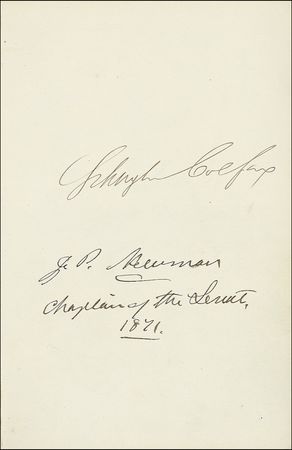 Schuyler Colfax
J. P. Newman
Chaplain of the Senate,
1871.